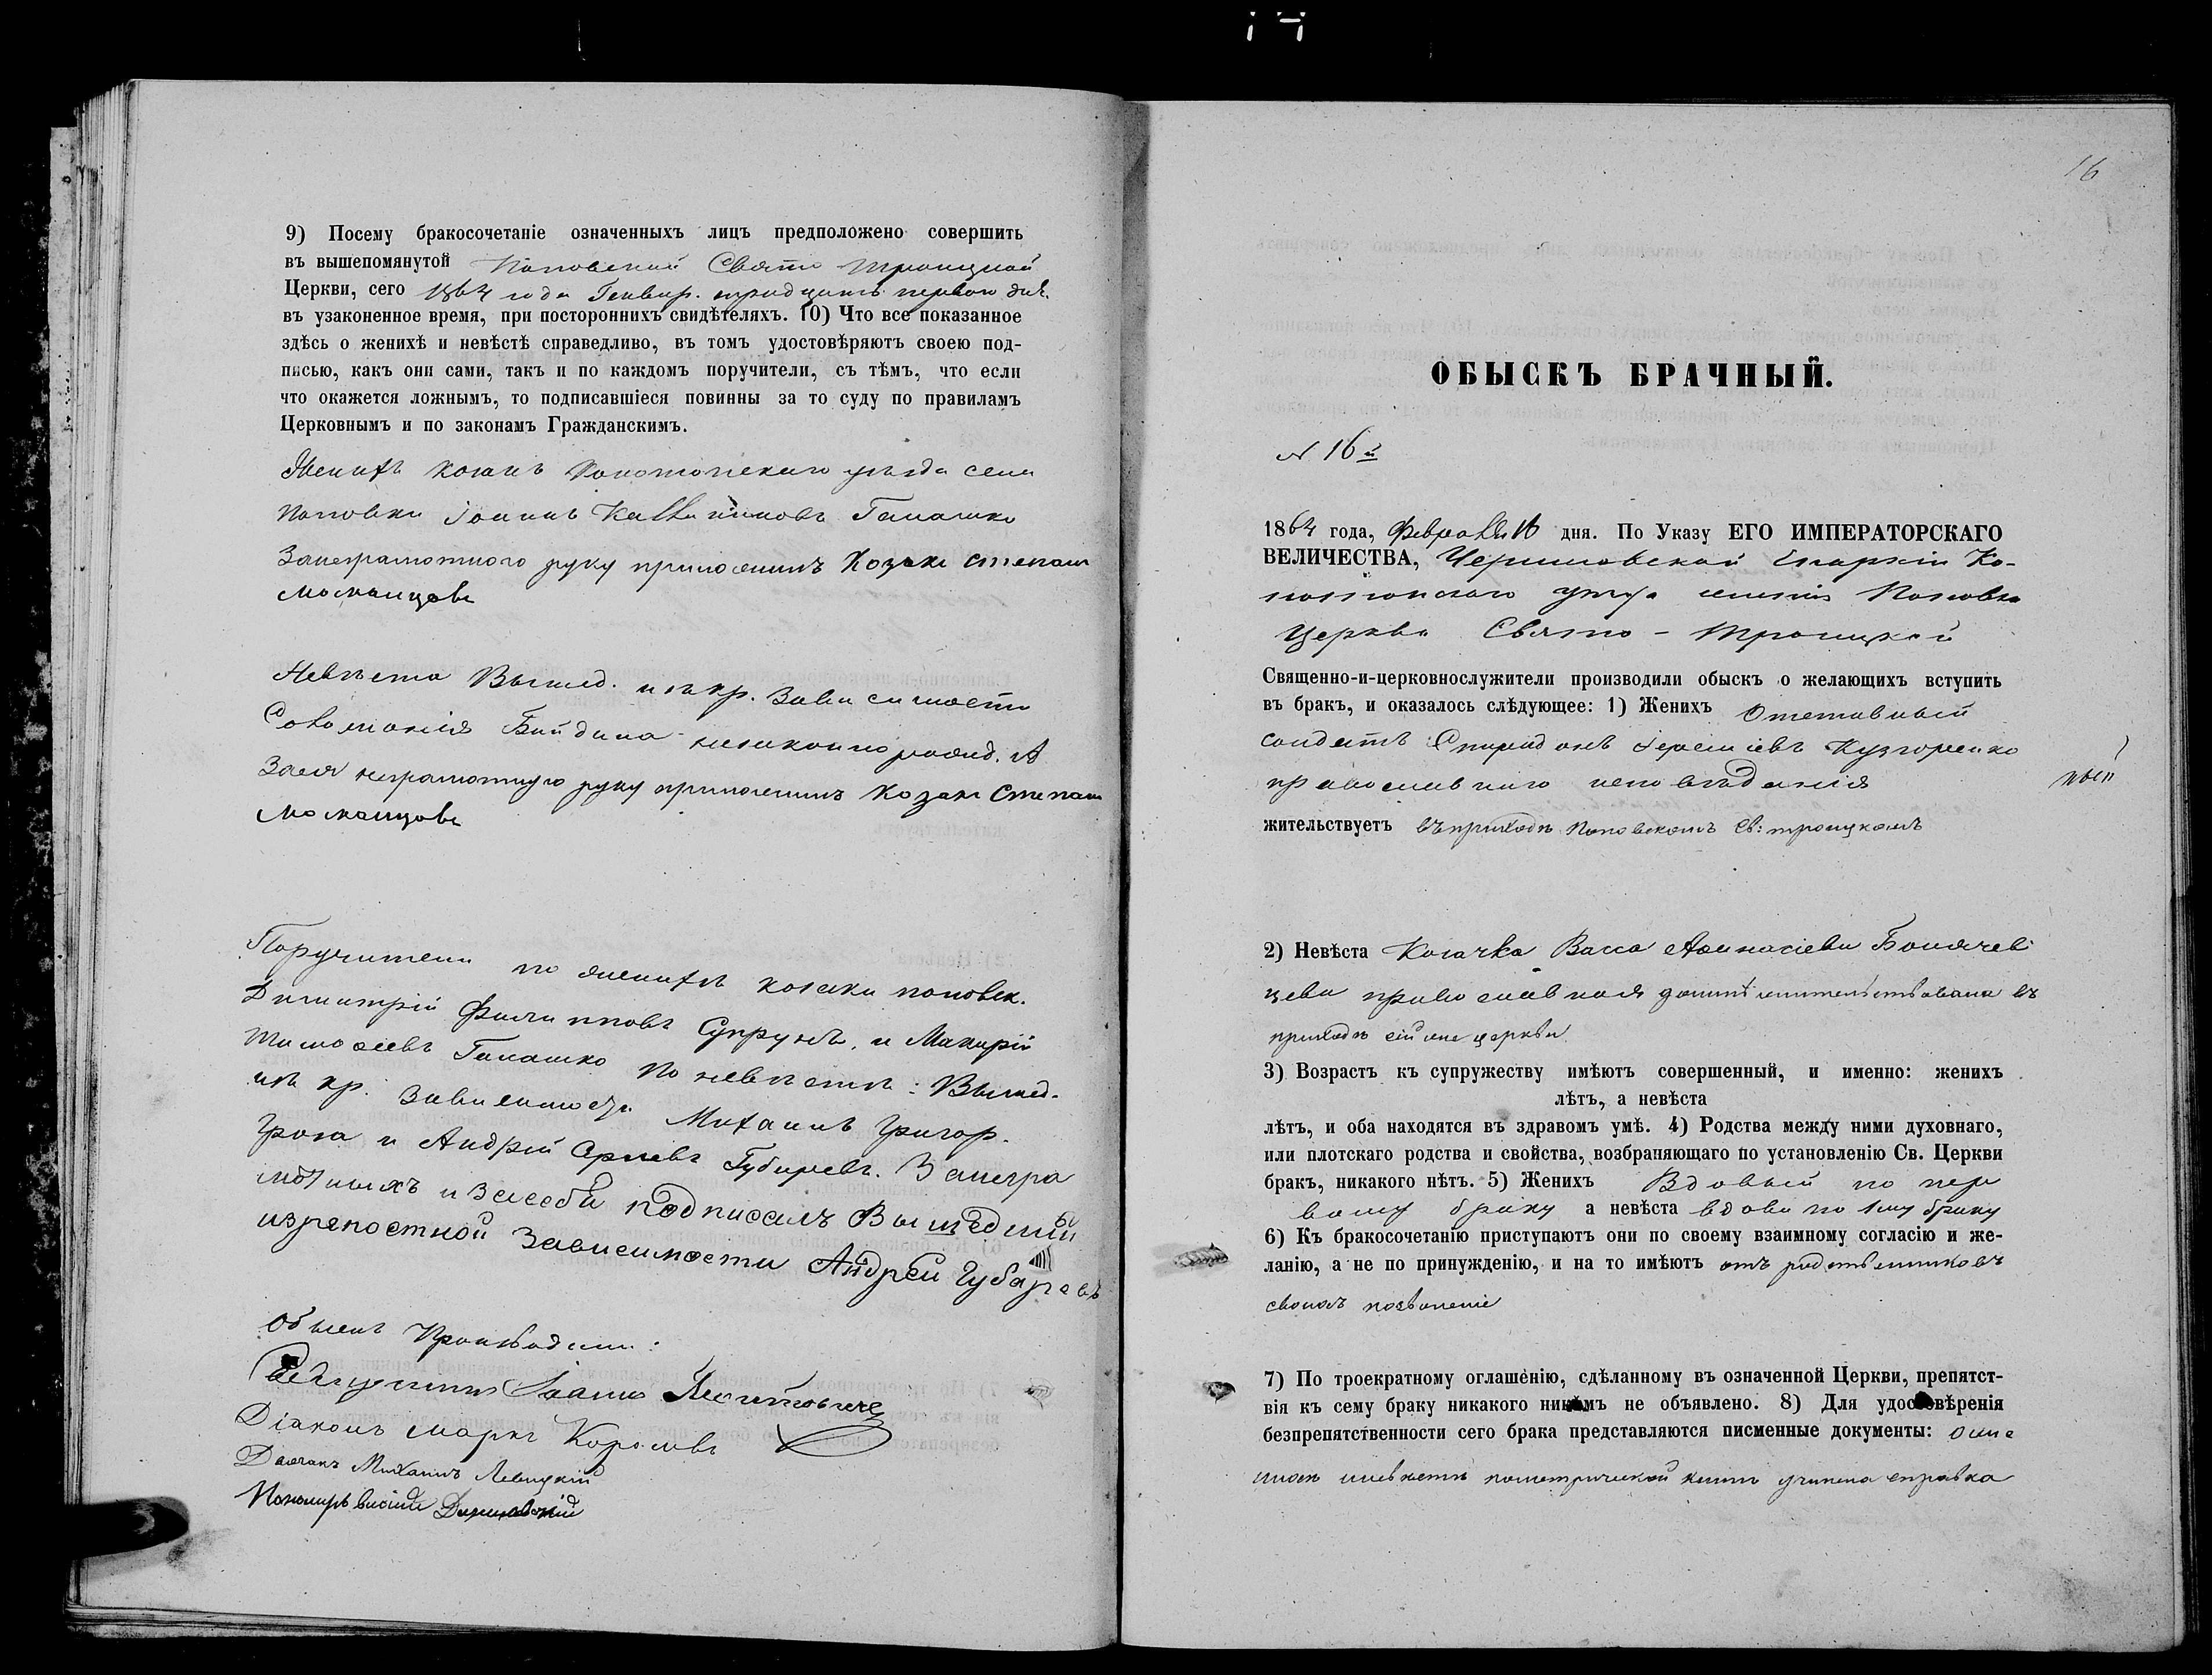 9) Посему бракосочетаніе означенныхъ лицъ предположено совершить
въ вышепомянутой Поповской Свято Троицкой
Церкви, сего 1864 года Генвар. тридцать первого дня.
въ узаконенное время, при постороннихъ свидѣтеляхъ. 10) Что все показанное
здѣсь о женихѣ и невѣстѣ справедливо, въ томъ удостовѣряютъ своею под-
писью, какъ они сами, такъ и по каждомъ поручители, съ тѣмъ, что если
что окажется ложнымъ, то подписавшіеся повинны за то суду по правиламъ
Церковнымъ и по законамъ Гражданскимъ.
Женихъ козакъ Конотопскаго уѣзда села
Поповки Іоаннъ Галашко
Занеграмотного руку приложилъ Козакъ Степан
Москаицовъ
Невѣста Вышед. изъ кр. Зависимости
Соломонія Байдина незаконнорожд. А
Заея неграмотную руку приложилъ Козакъ Степан
Москаицовъ
Поручители по женихѣ козаки поповск.
Димитрій Филипповъ Супрунъ, и Макарій
Тимоѳеевъ Галашко По невѣстѣ: Вышед.
изъ кр. Зависимости Михаилъ Григор.
Гроза и Андрій Губаревъ. Занегра
мотныхъ и Засебя подписалъ Вышедшій
изрепостной Зависимости Андрей Губаревъ
Обыскъ Производили:
Священникъ Іоаннъ
Діаконъ Маркъ Королевъ
Дьячокъ Михаилъ Левицкій
Пономарь
16
ОБЫСКЪ БРАЧНЫЙ.
N 16й
1864 года, Февраля 16 дня. По Указу ЕГО ИМПЕРАТОРСКАГО
ВЕЛИЧЕСТВА, Черниговской Епархіи Ко-
нотопскаго уѣзда селенія Поповки
Церкви Свято - Троицкой
Священно-и-церковнослужители производили обыскъ о желающихъ вступить
въ бракъ, и оказалось слѣдующее: 1) Женихъ Отставный
солдатъ Спиридонъ Кузьменко
православного исповѣданія
жительствуетъ въ приходѣ Поповскомъ Св: троицкомъ
2) Невѣста Козачка Васса Аѳанасіева
цева православная жительствовала въ
приходѣ сей же церкви
3) Возрастъ къ супружеству имѣютъ совершенный, и именно: женихъ
лѣтъ, а невѣста
лѣтъ, и оба находятся въ здравомъ умѣ. 4) Родства между ними духовнаго,
или плотскаго родства и свойства, возбраняющаго по установленію Св. Церкви
бракъ, никакого нѣтъ. 5) Женихъ Вдовый по пер
вому браку а невѣста вдова по 1му браку
6) Къ бракосочетанію приступаютъ они по своему взаимному согласію и же-
ланію, а не по принужденію, и на то имѣютъ отъ родственниковъ
своихъ позволеніе
7) По троекратному оглашенію, сдѣланному въ означенной Церкви, препятст-
вія къ сему браку никакого никѣмъ не объявлено. 8) Для удостовѣренія
безпрепятственности сего брака представляются писменные документы: о
невѣстѣ пометрической книгѣ учинена справка